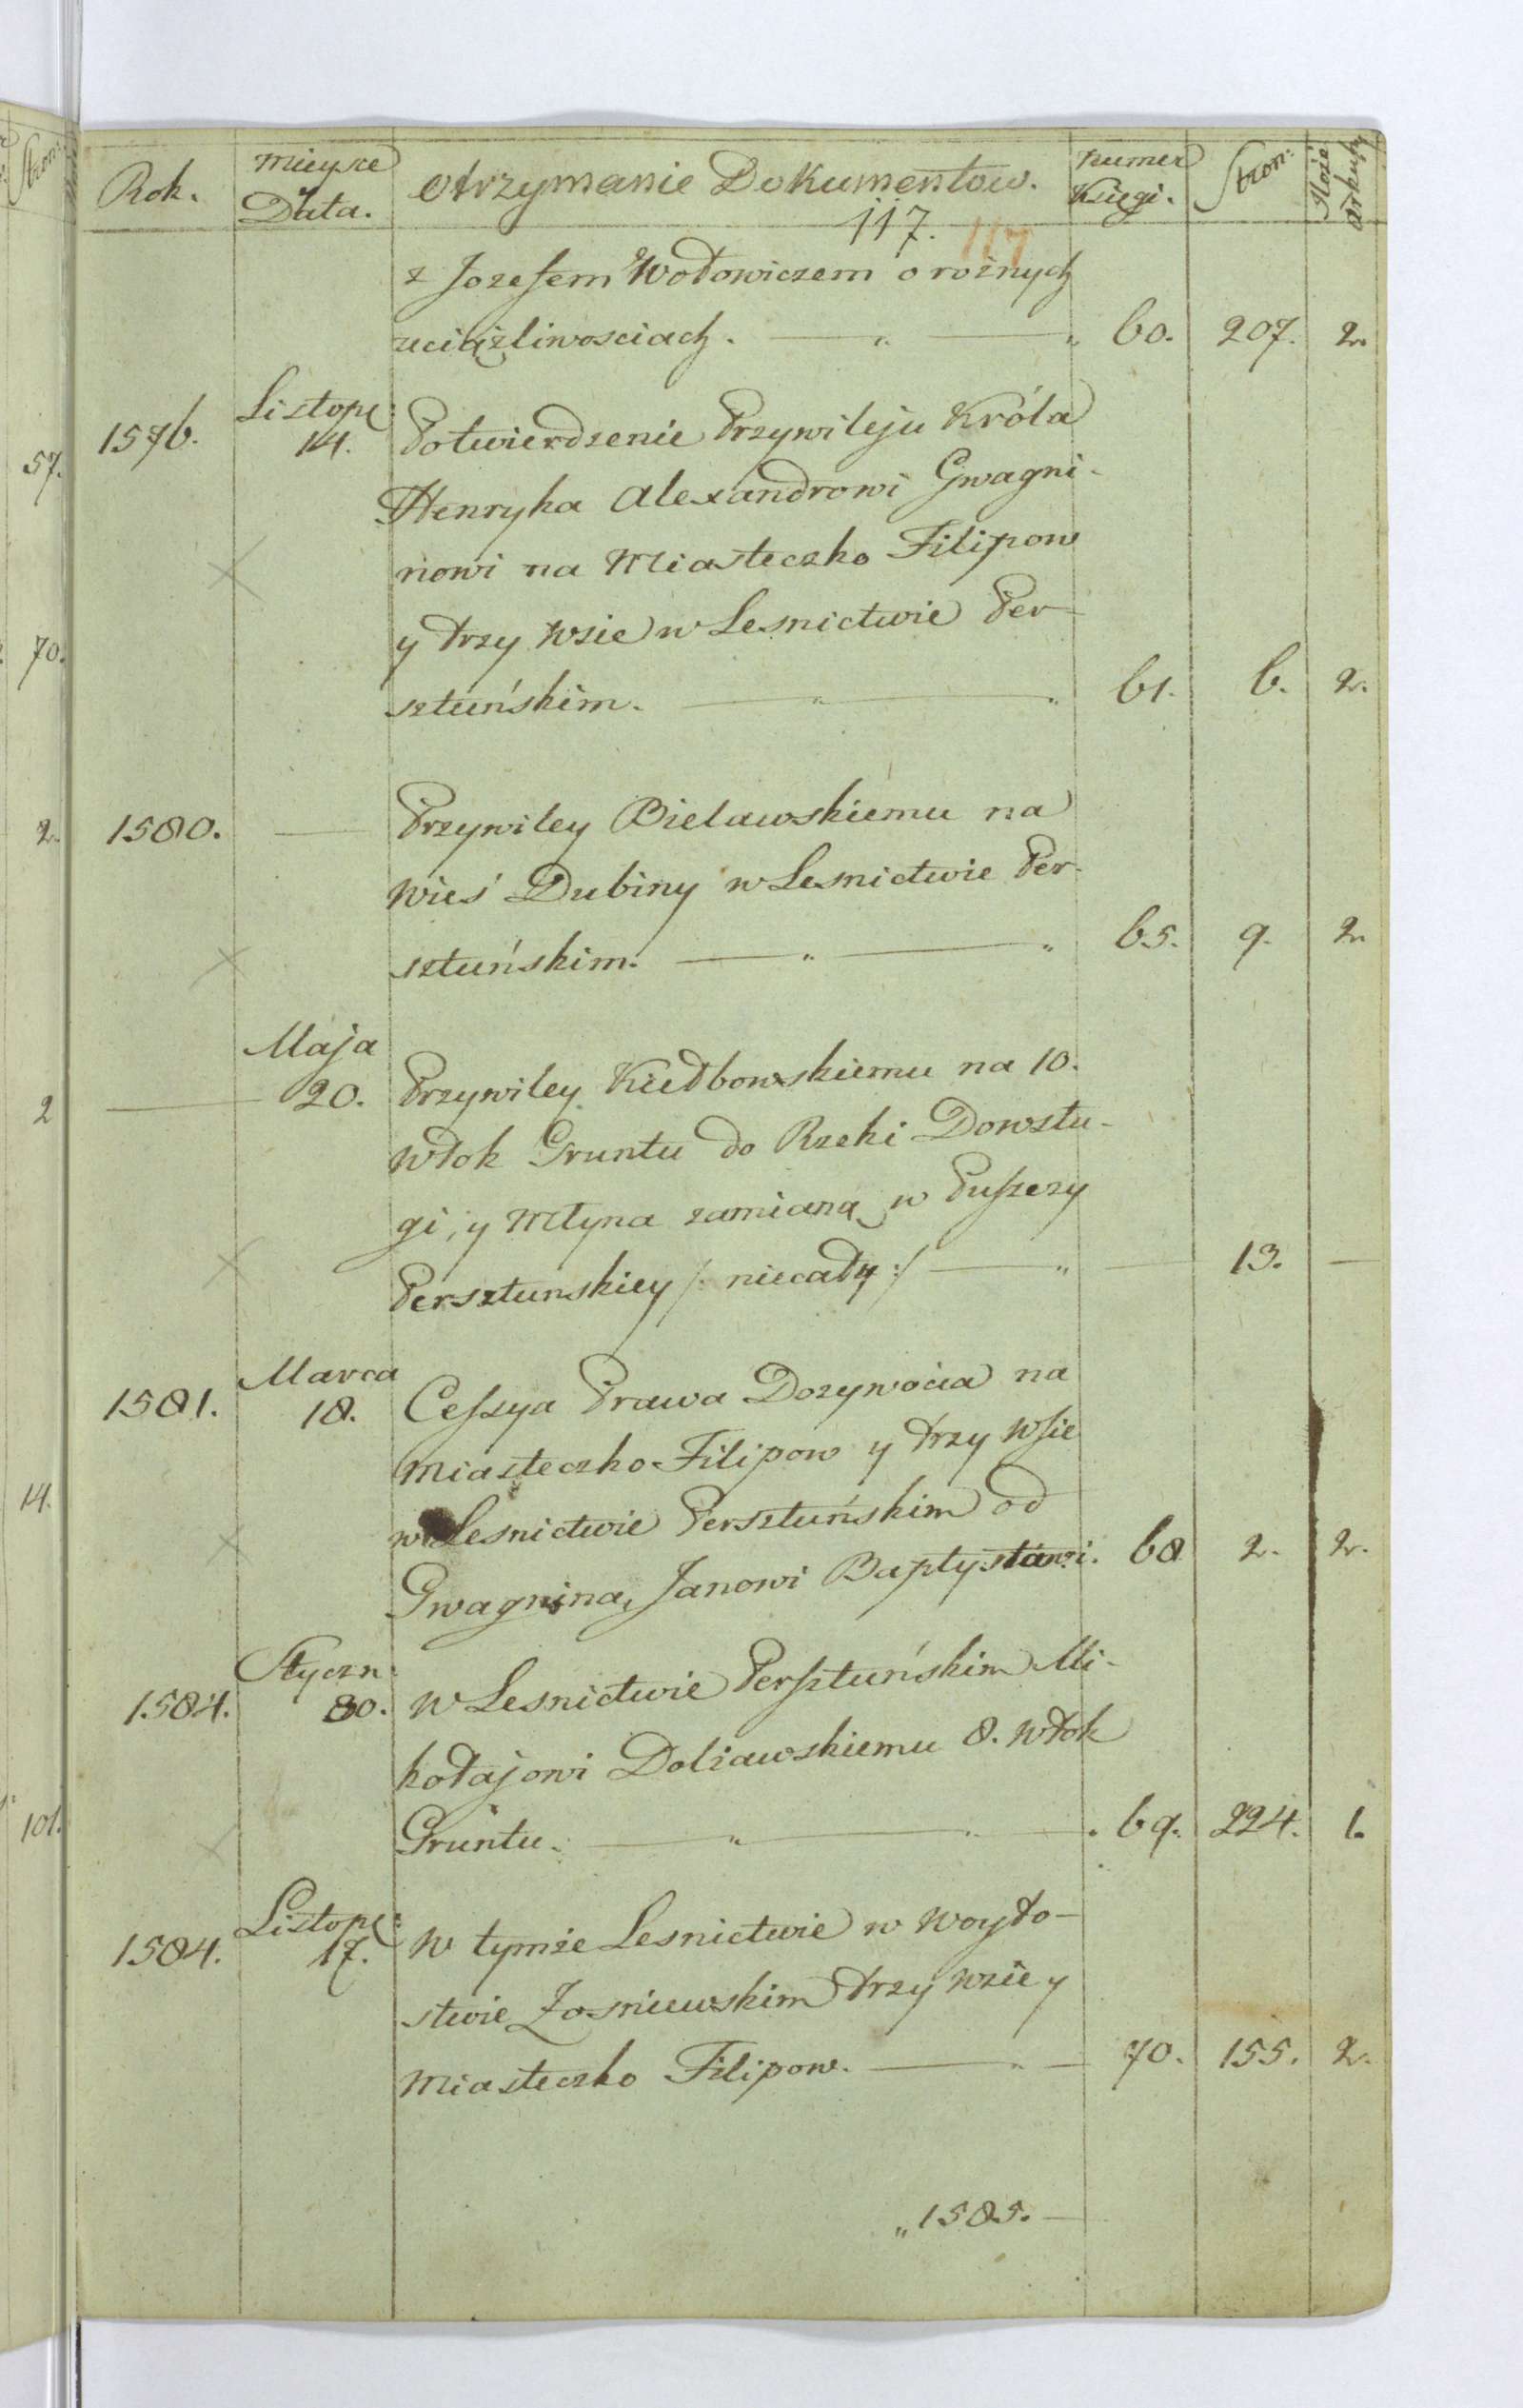 Rok.
Mieysce
y
Data.
Otrzymanie Dokumentow.
Numer
Księgi.
Stron:
Ilość
Arkuszy
117. 117
z Jozefem Wołowiczem o rożnych
uciążliwosciach. — „ — „ 60. 207. 2.
1576. Listop: 14. Potwierdzenie Przywileju Króla
Henryka Alexandrowi Gwagni-
nowi na Miasteczko Filipow
y trzy Wsie w Lesnictwie Per-
sztuńskim. — „ — „ 61. 6. 2.
1580. — Przywiley Bielawskiemu na
Wieś Dubiny w Lesnictwie Per-
sztuńskim. — „ — „ 65. 9. 2.
— Maja 20. Przywiley Kiełbowskiemu na 10.
Włok Gruntu do Rzeki Dowstu-
gi, y Młyna zamianą w Puszczy
Persztunskiey /: niecały :/ — „ — 13. —
1581. Marca 18. Cessya Prawa Dozywocia na
Miasteczko Filipow y trzy Wsie
w Lesnictwie Persztuńskim od
Gwagnina, Janowi Baptystowi. 68 2. 2.
1584. Styczn: 30. W Lesnictwie Persztuńskim Mi-
kołajowi Doliawskiemu 8. Włok
Gruntu. — „ — „ — 69. 224. 1.
1584. Listop: 17. W tymże Lesnictwie w Woyto-
stwie Zosniewskim trzy Wsie y
Miasteczko Filipow. — „ — 70. 155. 2.
„1585. —
57.
70.
2.
2
14.
101.